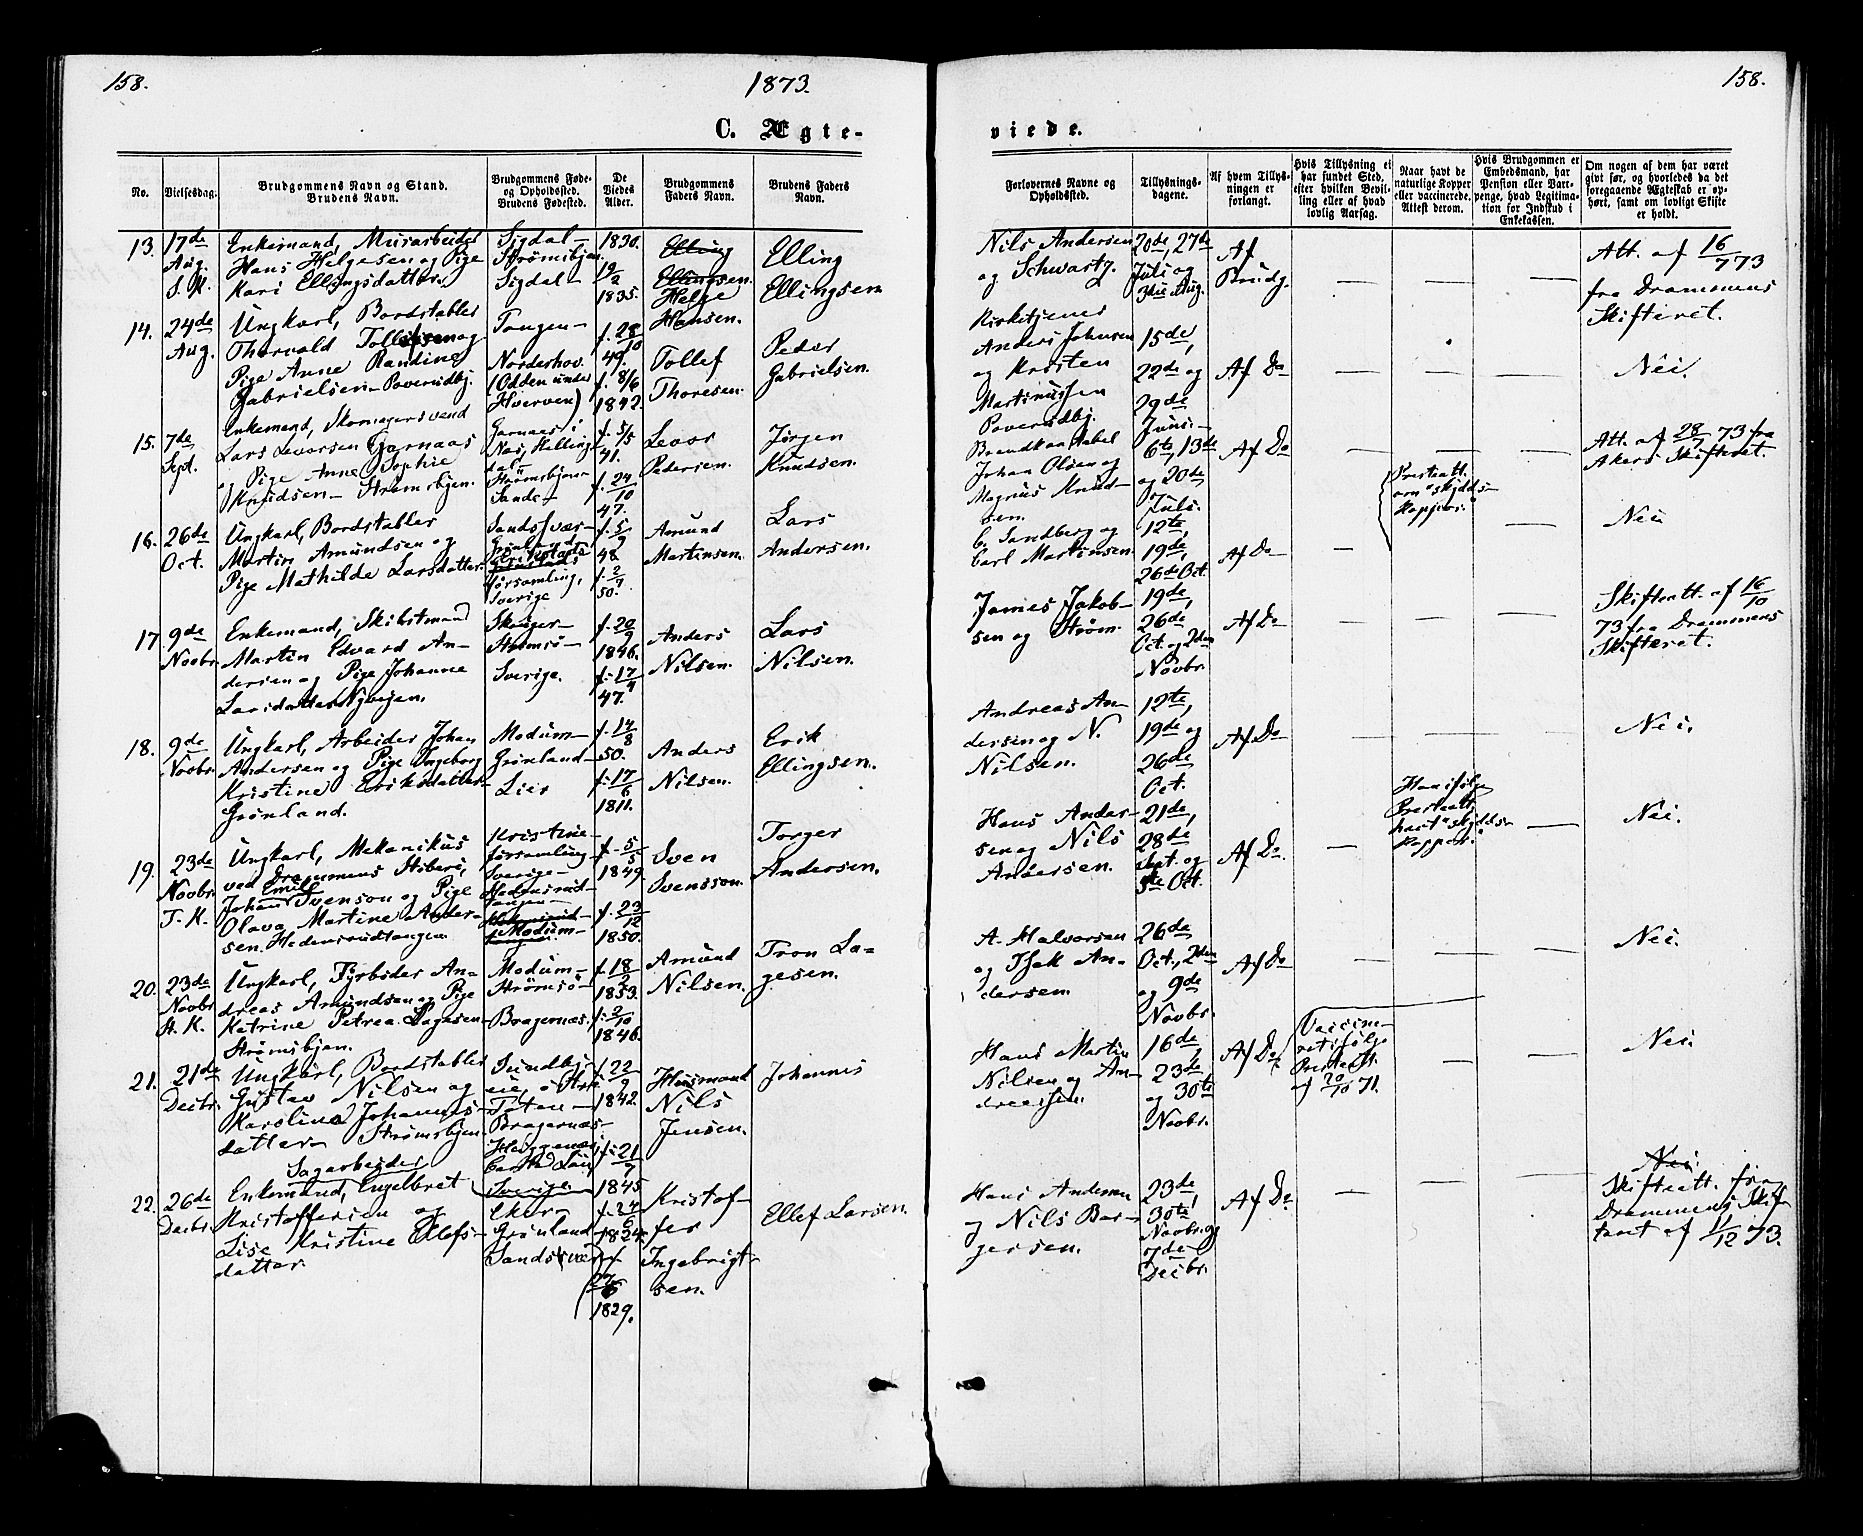 158.
1873.
158.
C. Ægte-
viede.
No.
Vielsesdag.
Brudgommens Navn og Stand.
Brudens Navn.
Brudgommens Føde-
og Opholdssted.
Brudens Fødested.
De
Viedes
Alder.
Brudgommens
Faders Navn.
Brudens Faders
Navn.
Forlovernes Navne og
Opholdssted.
Tillysnings-
dagene.
Af hvem Tillys-
ningen er
forlangt.
Hvis Tillysning ei
har fundet Sted,
efter hvilken Bevil-
ling eller af hvad
lovlig Aarsag.
Naar havt de
naturlige Kopper
eller vaccinerede.
Attest derom.
Hvis Brudgommen er
Embedsmand, har
Pension eller Vart-
penge, hvad Legitima-
tion for Indskud i
Enkekassen.
Om nogen af dem har været
gift før, og hvorledes da det
foregaaende Ægteskab er op-
hørt, samt om lovligt Skifte
er holdt.
13.
17de
Aug.
S. K.
Enkemand, Murarbeider
Hans Helgesen og Pige
Kari Ellingsdatter.
Sigdal -
Strømsbjen.
Sigdal -
1830.
19/2
1835.
Elling
Ellingsen.
Helge
Hansen.
Elling
Ellingsen
Nils Andersen
og Schwartz.
20de, 27de
Juli og
3die Aug.
Af
Brudg.
Att. af 16/7 73
fra Drammens
Skifteret.
14.
24de
Aug.
Ungkarl, Bordstabler
Thorvald Tollefsen og
Pige Anne Randine
Gabrielsen - Poverudbj.
Tangen -
Norderhov.
(Odden under
Hverven)
f. 28/10
49.
f. 8/6
1842.
Tollef
Thoresen.
Peder
Gabrielsen.
Kirketjener
Anders Johnsen
og Kristen
Martinussen
Poverudbj.
15de,
22de og
29de
Juni.
Af Do
Nei.
15.
7de
Sept.
Enkemand, Skomagersvend
Lars Levorsen Garnaas
og Pige Anne Sophie
Knudsen - Strømsbjen.
Garnaas i
Næs, Halling
dal -
Strømsbjen -
Sande -
f. 5/5
41.
f. 24/10
47.
Levor
Pedersen.
Jørgen
Knudsen.
Brandkonstabel
Johan Olsen og
Magnus Knud-
sen.
6te, 13de
og 20de
Juli.
Af Do
Att. af 28/7 73 fra
Akers Skifteret.
16.
26de
Oct.
Ungkarl, Bordstabler
Martin Amundsen og
Pige Mathilde Larsdatter.
Sandsvær -
Grønland -
Forsamling,
Sverige
f. 5/9
48
f. 2/7
50.
Amund
Martinsen.
Lars
Andersen.
C. Sandberg og
Carl Martinsen
12te,
19de,
26de Oct.
Af Do
Presteatt.
om "skydds-
koppor."
Nei
17.
9de
Novbr.
Enkemand, Skibstmand
Martin Edvard An-
dersen og Pige Johanne
Larsdatter Nyvejen.
Skoger -
Strømsø -
Sverige.
f. 20/9
1846.
f. 17/4
47.
Anders
Nilsen.
Lars
Nilsen.
James Jakob-
sen og Strøm.
19de,
26de
Oct. og 2den
Novbr.
Af Do
Skifteatt. af 16/10
73 fra Drammens
Skifteret.
18.
9de
Novbr.
Ungkarl, Arbeider Johan
Andersen og Pige Ingeborg
Kristine Eriksdatter -
Grønland.
Modum -
Grønland -
Lier
f. 14/8
50.
f. 17/6
1811.
Anders
Nilsen.
Erik
Ellingsen.
Andreas An-
dersen og N.
Nilsen.
12te,
19de og
26de
Oct.
Af Do
Nei.
19.
23de
Novbr.
T. K.
Ungkarl, Mekanikus
ved Drammens Støberi,
Johan Emil Svenson og Pige
Olava Martine Ander-
sen. Hedensrudtangen.
Kristine-
forsamling -
Sverige -
Hedensrud-
tangen -
Modum -
f. 5/5
1849.
f. 23/12
1850.
Sven
Svensson.
Torger
Andersen.
Hans Ander-
sen og Nils
Andersen.
21de,
28de
Sept. og
5te Oct.
Af Do.
Presteatt.
havt "skydds-
koppor."
Nei.
20.
23de
Novbr
St. K.
Ungkarl, Fyrbøder An-
dreas Amundsen og Pige
Katrine Petrea Lagesen -
Strømsbjen.
Modum -
Strømsø -
Bragernæs.
f. 18/2
1853.
f. 2/10
1846.
Amund
Nilsen.
Tron La-
gesen.
A. Halvorsen
og Isak An-
dersen.
26de
Oct., 2den
og 9de
Novbr.
Af Do
Nei.
21.
21de
Decbr.
Ungkarl, Bordstabler
Gustav Nilsen og
Karoline Johannes-
datter - Strømsbjen
Sundbj
eie, Ø.
Toten -
Bragernæs -
Sverige
f. 22/9
1842.
f. 21/7
1845
Husmand
Nils
Jensen.
Johannes
Hans Martin
Nilsen og An-
dreassen.
16de,
23de
og 30te
Novbr.
Af Do
Vaccine-
ret ifølge
Presteatt.
af 20/10 71.
Nei.
22.
26de
Decbr.
Sagarbeider
Enkemand, Engelbret
Kristoffersen og
Lise Kristine Ellefs-
datter.
Eker -
Grønland
Sandsvær
f. 24/6
1824.
f.
1829.
Kristof-
fer
Ingebrigt-
sen.
Ellef Larsen.
Hans Andersen
og Nils Bør-
gersen.
23de,
30te
Novbr. og
7de
Decbr.
Af Do
Nei
Skifteatt. fra
Drammens Skif-
teret af 11/12 73.